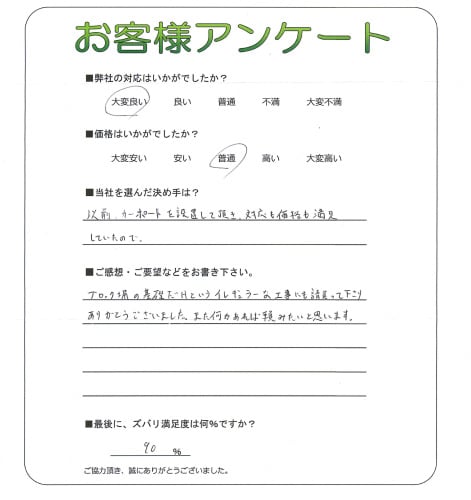 お客様アンケート
■弊社の対応はいかがでしたか？
大変良い 良い 普通 不満 大変不満
■価格はいかがでしたか？
大変安い 安い 普通 高い 大変高い
■当社を選んだ決め手は？
以前、カーポートを設置して頂き、対応も価格も満足
していたので。
■ご感想・ご要望などをお書き下さい。
ブロック塀の基礎だけというイレギュラーな工事にも請負って下さり
ありがとうございました。また何かあれば頼みたいと思います。
■最後に、ズバリ満足度は何％ですか？
90 ％
ご協力頂き、誠にありがとうございました。